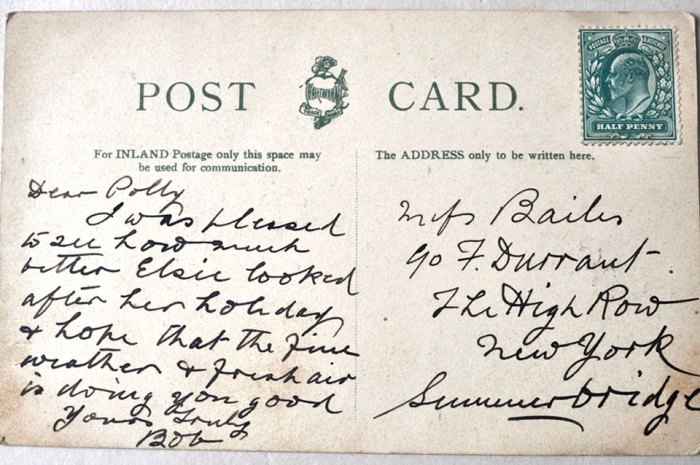 POST CARD.
HARTMANN
TRADE MARK
POSTAGE & REVENUE
HALF PENNY
For INLAND Postage only this space may
be used for communication.
The ADDRESS only to be written here.
Dear Polly
I was plessed
to see how much
better Elsie looked
after her holiday
& hope that the fine
weather & fresh air
is doing you good
Yours Truly
Bob
Mrs Bailes
c/o F. Durrant
The High Row
New York
Summerbridge